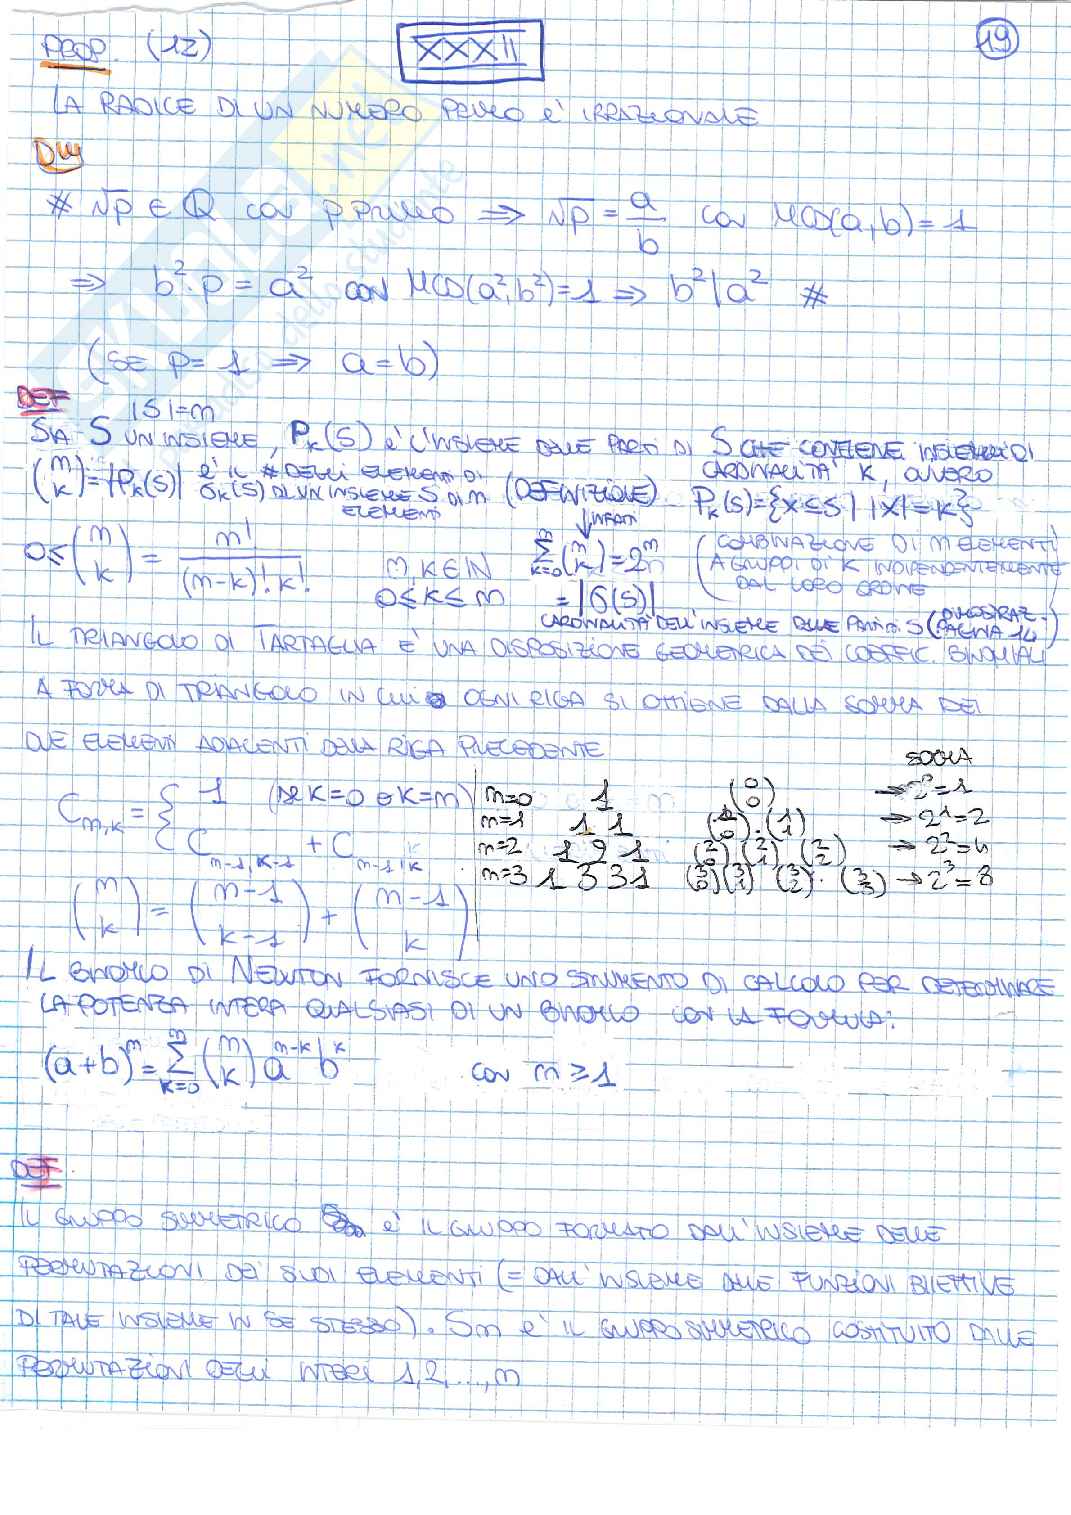 PROP. (12) XXXII 19
LA RADICE DI UN NUMERO PRIMO è IRRAZIONALE
DIM
# √p ∈ ℚ con p primo ⇒ √p = a/b con MCD(a,b)=1
⇒ b²·p = a² con MCD(a²,b²)=1 ⇒ b²|a² #
(SE p=1 ⇒ a=b)
DEF
|S|=m
SIA S UN INSIEME, Pk(S) è L'INSIEME DELLE PARTI DI S CHE CONTIENE INSIEMI DI
CARDINALITA' K, OVVERO
(m k)=|Pk(S)| è IL # DEGLI ELEMENTI DI
σk(S) DI UN INSIEME S DI m ELEMENTI (DEFINIZIONE) Pk(S)={X⊆S | |X|=k}
INFATTI
0≤(m k) = m!/((m-k)!·k!) m,k∈ℕ 0≤k≤m
∑k=0 m (m k)=2^m
=|σ(S)|
(COMBINAZIONE DI m ELEMENTI
A GRUPPI DI K INDIPENDENTEMENTE
DAL LORO ORDINE
CARDINALITA' DELL'INSIEME DELLE PARTI DI S (DIMOSTRAZ. PAGINA 14)
IL TRIANGOLO DI TARTAGLIA è UNA DISPOSIZIONE GEOMETRICA DEI COEFFIC. BINOMIALI
A FORMA DI TRIANGOLO IN CUI OGNI RIGA SI OTTIENE DALLA SOMMA DEI
DUE ELEMENTI ADIACENTI DELLA RIGA PRECEDENTE
SOMMA
C m,k = { 1 (se K=0 o K=m)
C m-1,k-1 + C m-1,k
m=0 1 (0 0) → 2⁰=1
m=1 1 1 (1 0)·(1 1) → 2¹=2
m=2 1 2 1 (2 0) (2 1) (2 2) → 2²=4
m=3 1 3 3 1 (3 0)(3 1) (3 2)·(3 3) → 2³=8
(m k) = (m-1 k-1) + (m-1 k)
IL BINOMIO DI NEWTON FORNISCE UNO STRUMENTO DI CALCOLO PER DETERMINARE
LA POTENZA INTERA QUALSIASI DI UN BINOMIO CON LA FORMULA:
(a+b)^m = ∑k=0 m (m k) a^m-k b^k con m≥1
DEF
IL GRUPPO SIMMETRICO è IL GRUPPO FORMATO DALL'INSIEME DELLE
PERMUTAZIONI DEI SUOI ELEMENTI (= DALL'INSIEME DELLE FUNZIONI BIIETTIVE
DI TALE INSIEME IN SE STESSO). Sm è IL GRUPPO SIMMETRICO COSTITUITO DALLE
PERMUTAZIONI DEGLI INTERI 1,2,...,m